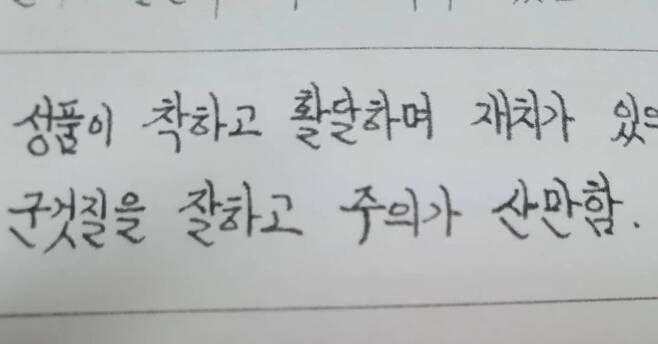 성품이 착하고 활달하며 재치가 있으
군것질을 잘하고 주의가 산만함.